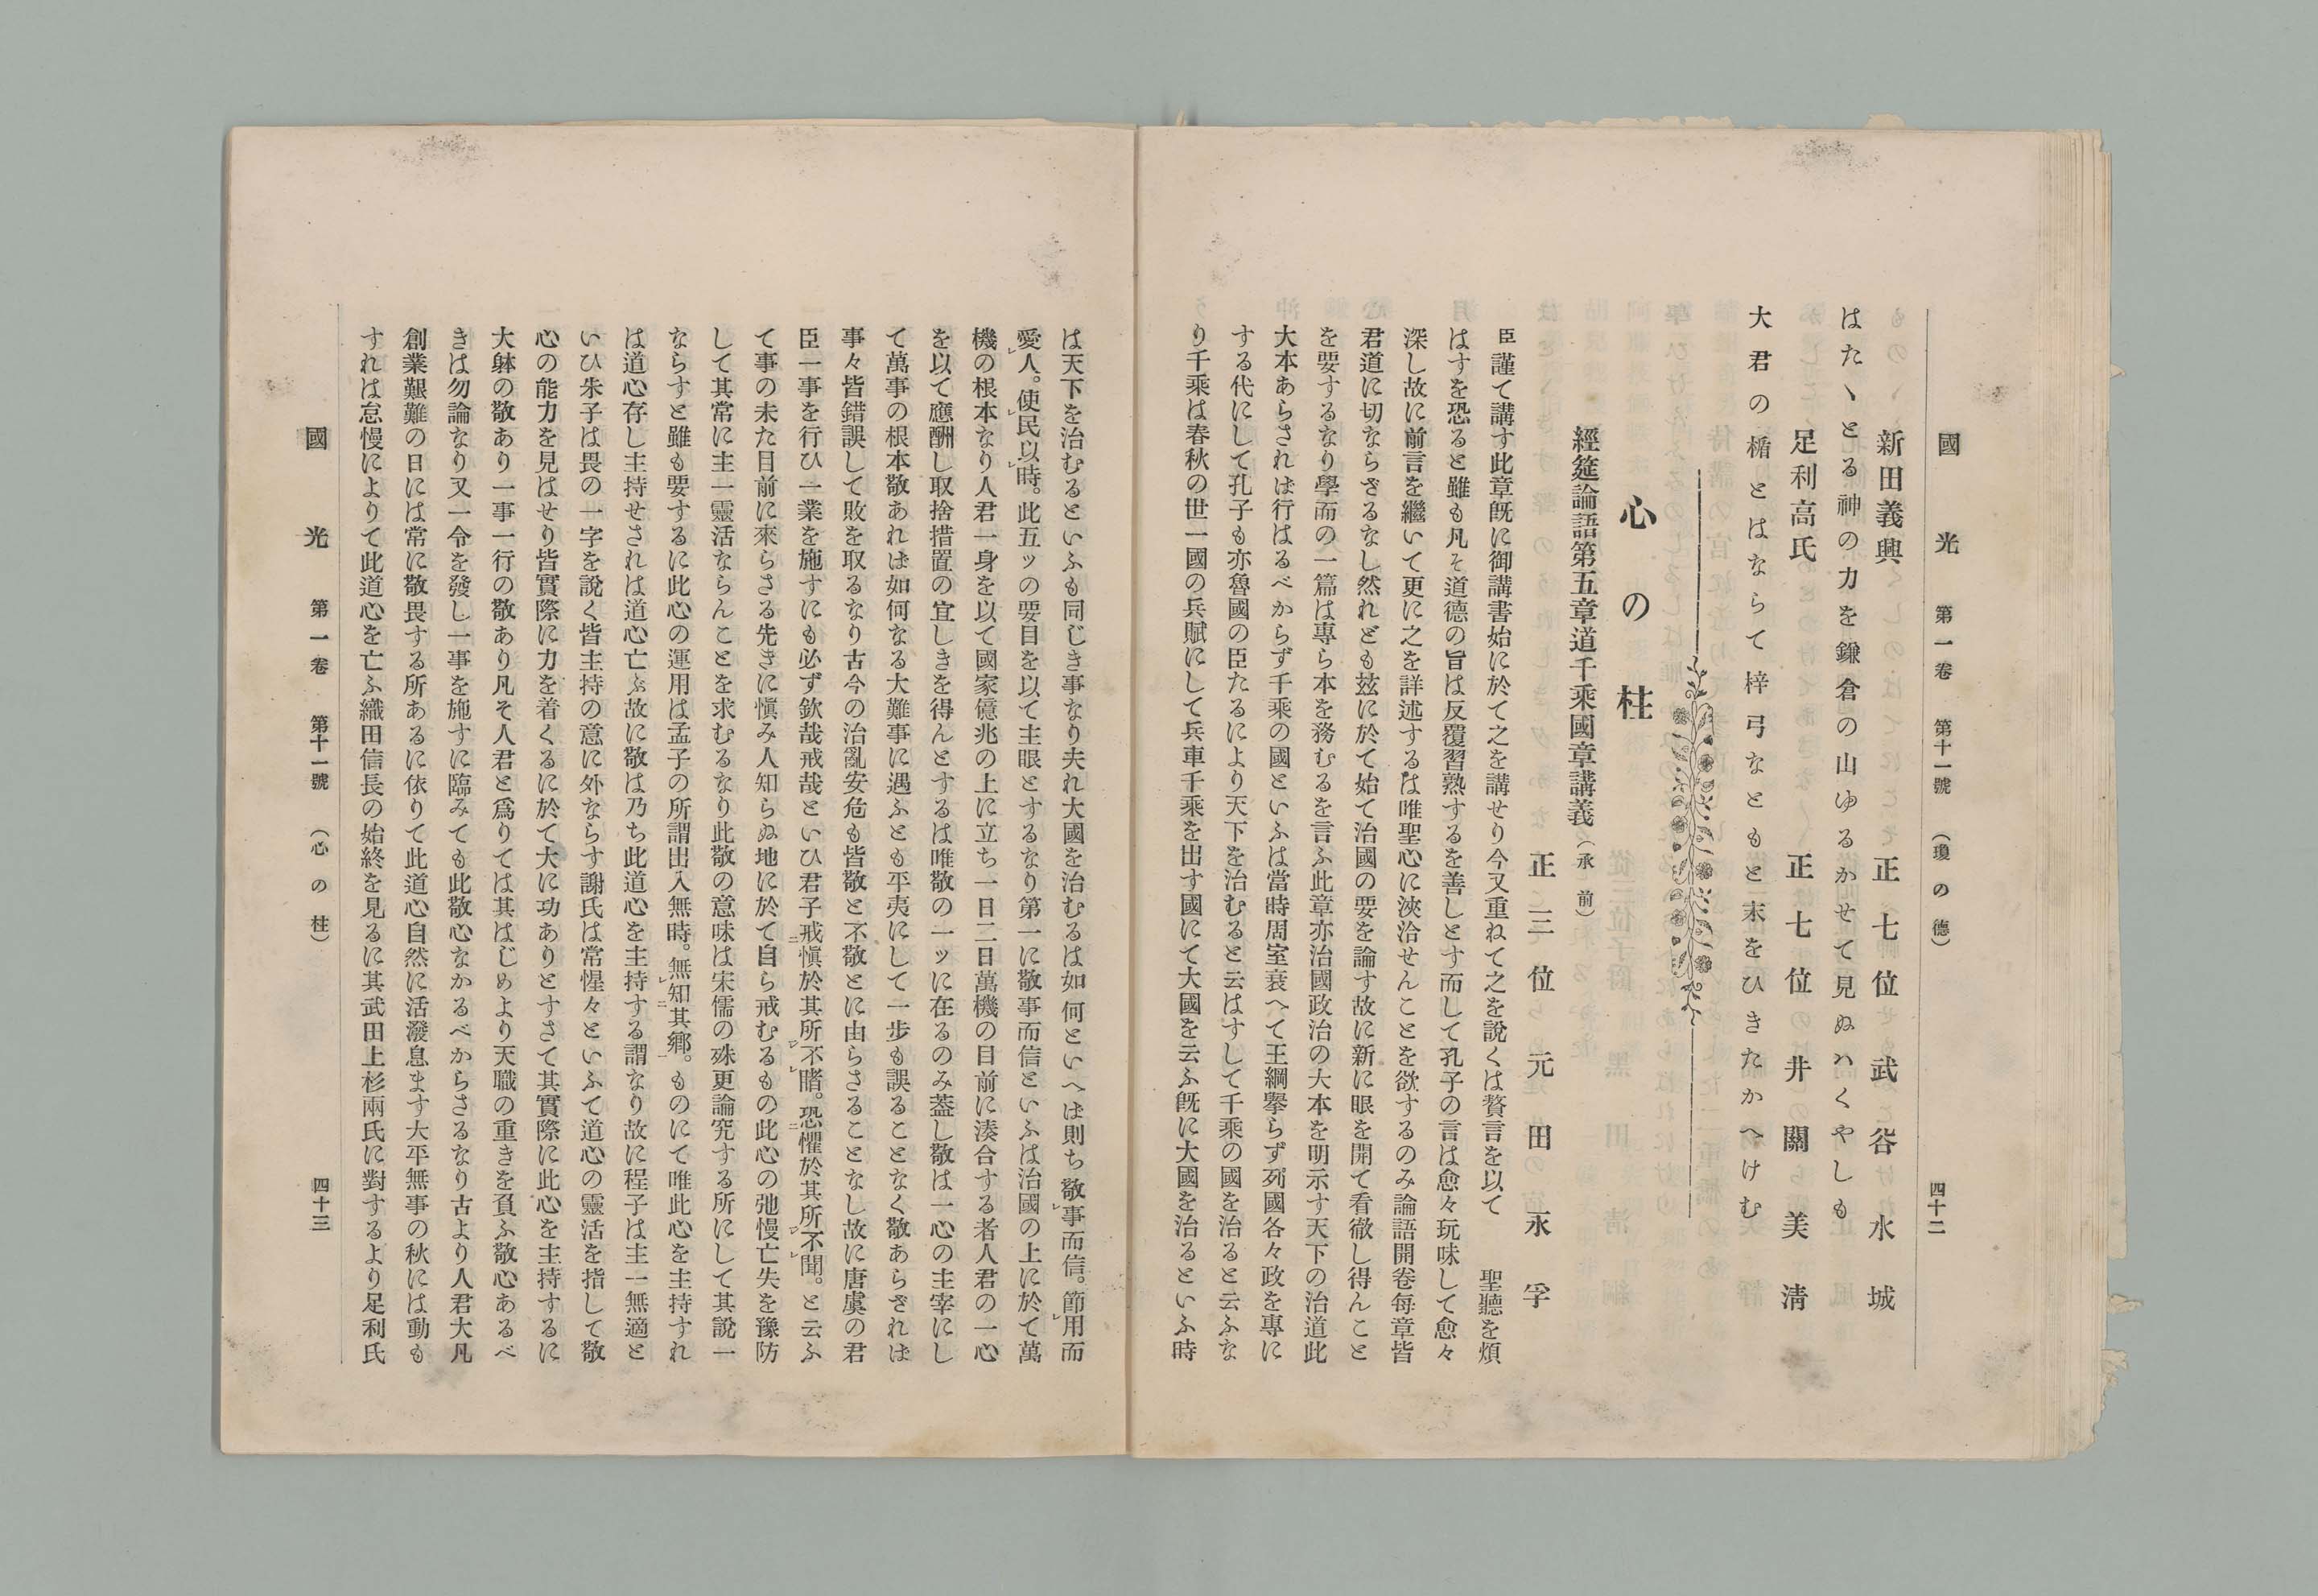 國光 第一卷 第十一號 (瓊の德) 四十二
新田義興 正七位 武谷水城
はたヽとる神の力を鎌倉の山ゆるかせて見ぬハくやしも
足利高氏 正七位 井關美清
大君の楯とはならて梓弓なともと末をひきたかへけむ
心の柱
經筵論語第五章道千乘國章講義(承前)
正三位 元田永孚
臣謹て講す此章旣に御講書始に於て之を講せり今又重ねて之を說くは贅言を以て 聖聽を煩
はすを恐ると雖も凡そ道德の旨は反覆習熟するを善しとす而して孔子の言は愈々玩味して愈々
深し故に前言を繼いて更に之を詳述するは唯聖心に浹洽せんことを欲するのみ論語開卷每章皆
君道に切ならざるなし然れども玆に於て始て治國の要を論す故に新に眼を開て看徹し得んこと
を要するなり學而の一篇は專ら本を務むるを言ふ此章亦治國政治の大本を明示す天下の治道此
大本あらされは行はるべからず千乘の國といふは當時周室衰へて王綱擧らず列國各々政を專に
する代にして孔子も亦魯國の臣たるにより天下を治むると云はすして千乘の國を治ると云ふな
り千乘は春秋の世一國の兵賦にして兵車千乘を出す國にて大國を云ふ旣に大國を治るといふ時
は天下を治むるといふも同じき事なり夫れ大國を治むるは如何といへは則ち敬㆑事而信。節㆑用而
愛㆑人。使㆑民以㆑時。此五ッの要目を以て主眼とするなり第一に敬事而信といふは治國の上に於て萬
機の根本なり人君一身を以て國家億兆の上に立ち一日二日萬機の目前に湊合する者人君の一心
を以て應酬し取捨措置の宜しきを得んとするは唯敬の一ッに在るのみ蓋し敬は一心の主宰にし
て萬事の根本敬あれは如何なる大難事に遇ふとも平夷にして一步も誤ることなく敬あらされは
事々皆錯誤して敗を取るなり古今の治亂安危も皆敬と不敬とに由らさることなし故に唐虞の君
臣一事を行ひ一業を施すにも必ず欽哉戒哉といひ君子戒㆓愼於其所㆒㆑不㆑睹。恐㆓懼於其所㆒㆑不㆑聞。と云ふ
て事の未た目前に來らさる先きに愼み人知らぬ地に於て自ら戒むるもの此心の弛慢亡失を豫防
して其常に主一靈活ならんことを求むるなり此敬の意味は宋儒の殊更論究する所にして其說一
ならすと雖も要するに此心の運用は孟子の所謂出入無㆑時。無㆑知㆓其鄕㆒。ものにて唯此心を主持すれ
は道心存し主持せされは道心亡ふ故に敬は乃ち此道心を主持する謂なり故に程子は主一無適と
いひ朱子は畏の一字を說く皆主持の意に外ならす謝氏は常惺々といふて道心の靈活を指して敬
心の能力を見はせり皆實際に力を着くるに於て大に功ありとすさて其實際に此心を主持するに
大躰の敬あり一事一行の敬あり凡そ人君と爲りては其はじめより天職の重きを負ふ敬心あるべ
きは勿論なり又一令を發し一事を施すに臨みても此敬心なかるべからさるなり古より人君大凡
創業艱難の日には常に敬畏する所あるに依りて此道心自然に活潑息ます大平無事の秋には動も
すれは怠慢によりて此道心を亡ふ織田信長の始終を見るに其武田上杉兩氏に對するより足利氏
國光 第一卷 第十一號 (心の柱) 四十三